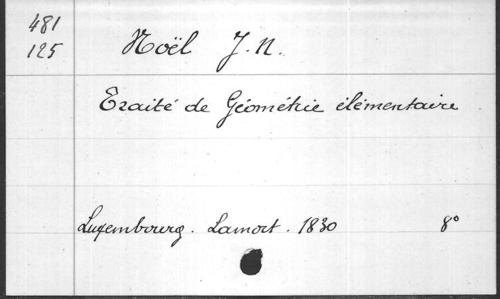 481
125
Noël J. N.
Traité de Géométrie élémentaire
Luxembourg. Lamort. 1830 8°